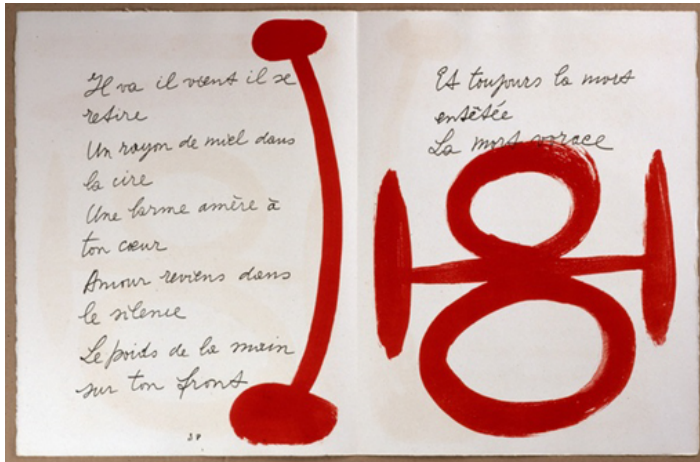 Il va il vient il se
retire
Un rayon de miel dans
la cire
Une larme amère à
ton cœur
Amour reviens dans
le silence
Le poids de la main
sur ton front
Et toujours la mort
entêtée
La mort vorace